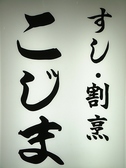 すし・割烹
こじま